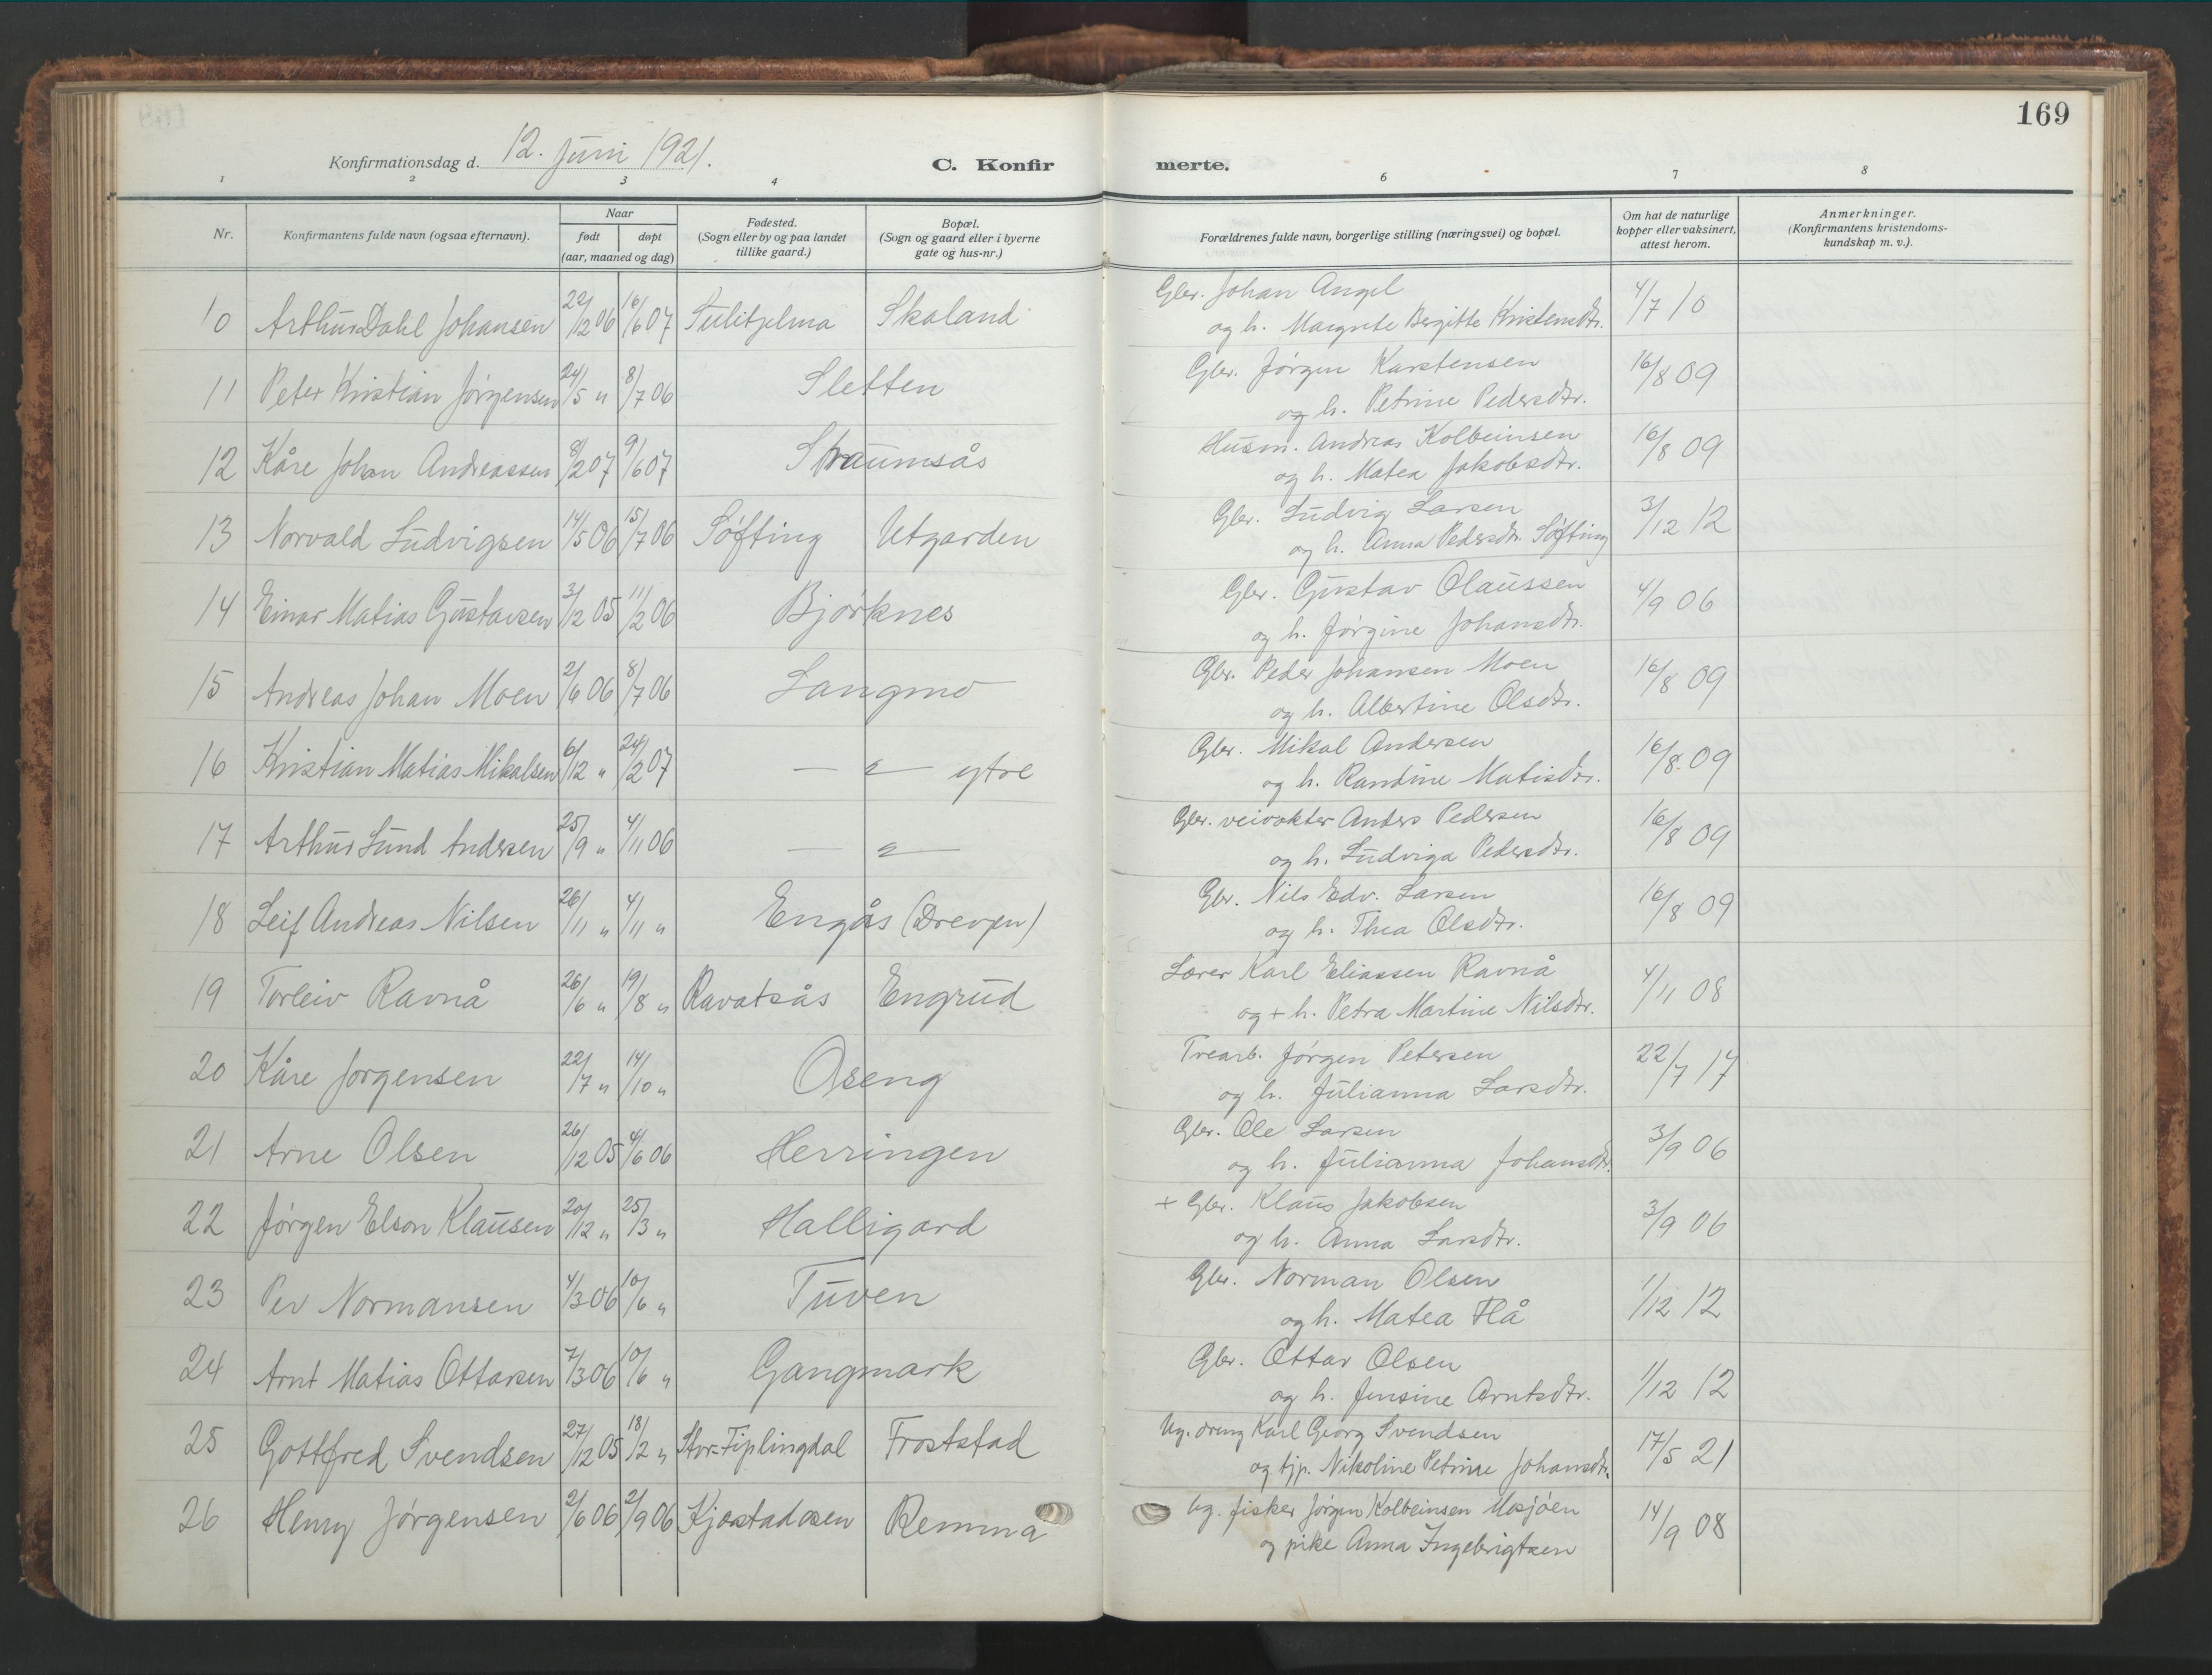 169
Konfirmationsdag d. 12. Juni 1921. C. Konfir merte.
1 2 3 4 6 7 8
Nr. Konfirmantens fulde navn (ogsaa efternavn). Naar født døpt (aar, maaned og dag) Fødested. (Sogn eller by og paa landet tillike gaard.) Bopæl. (Sogn og gaard eller i byerne gate og hus-nr.) Forældrenes fulde navn, borgerlige stilling (næringsvei) og bopæl. Om hat de naturlige kopper eller vaksinert, attest herom. Anmerkninger. (Konfirmantens kristendoms-kundskap m. v.).
10 Arthur Dahl Johansen 22/12 06 16/6 07 Sulitjelma Skaland Gbr. Johan Angel 4/7 10
og h. Margrete Bergitte Kristensdtr.
11 Peter Kristian Jørgensen 24/5 " 8/7 06 Sletten Gbr. Jørgen Karstensen 16/8 09
og h. Petrine Pedersdtr.
12 Kåre Johan Andreassen 8/2 07 9/6 07 Straumsås Husm. Andreas Kolbeinsen 16/8 09
og h. Matea Jakobsdtr.
13 Norvald Ludvigsen 14/5 06 15/7 06 Søfting Utgarden Gbr. Ludvig Larsen 3/12 12
og h. Anna Pedersdtr. Søfting
14 Einar Matias Gustavsen 3/12 05 11/2 06 Bjørknes Gbr. Gustav Olaussen 4/9 06
og h. Jørgine Johansdtr.
15 Andreas Johan Moen 2/6 06 8/7 06 Langmo Gbr. Peder Johansen Moen 16/8 09
og h. Albertine Olsdtr.
16 Kristian Matias Mikalsen 6/12 " 24/2 07 — " — ytre Gbr. Mikal Andersen 16/8 09
og h. Randine Matisdtr.
17 Arthur Lund Andersen 25/9 " 4/11 06 — " — Gbr. veivokter Anders Pedersen 16/8 09
og h. Ludviga Pedersdtr.
18 Leif Andreas Nilsen 26/11 " 4/11 " Engås (Drevjen) Gbr. Nils Edv. Larsen 16/8 09
og h. Thea Olsdtr.
19 Torleiv Ravnå 26/6 " 19/8 " Ravatsås Engrud Lærer Karl Eliassen Ravnå 4/11 08
og + h. Petra Martine Nilsdtr.
20 Kåre Jørgensen 22/7 " 14/10 " Oseng Trearb. Jørgen Petersen 22/7 17
og h. Julianna Larsdtr.
21 Arne Olsen 26/12 05 4/6 06 Herringen Gbr. Ole Larsen 3/9 06
og h. Julianna Johansdtr.
22 Jørgen Elson Klausen 20/12 " 25/3 " Halligard + Gbr. Klaus Jakobsen 3/9 06
og h. Anna Larsdtr.
23 Per Normansen 4/3 06 10/6 " Tuven Gbr. Norman Olsen 1/12 12
og h. Matea Flå
24 Arnt Matias Ottarsen 7/3 06 10/6 " Gangmark Gbr. Ottar Olsen 1/12 12
og h. Jensine Arntsdtr.
25 Gottfred Svendsen 27/12 05 18/2 " Stor-Tiplingdal Froststad Ug. dreng Karl Georg Svendsen 17/5 21
og tjp. Nikoline Petrine Johansdtr.
26 Henry Jørgensen 2/6 06 2/9 06 Kjøstadåsen Remma Ug. fisker Jørgen Kolbeinsen Mosjøen 14/9 08
og pike Anna Ingebrigtsen